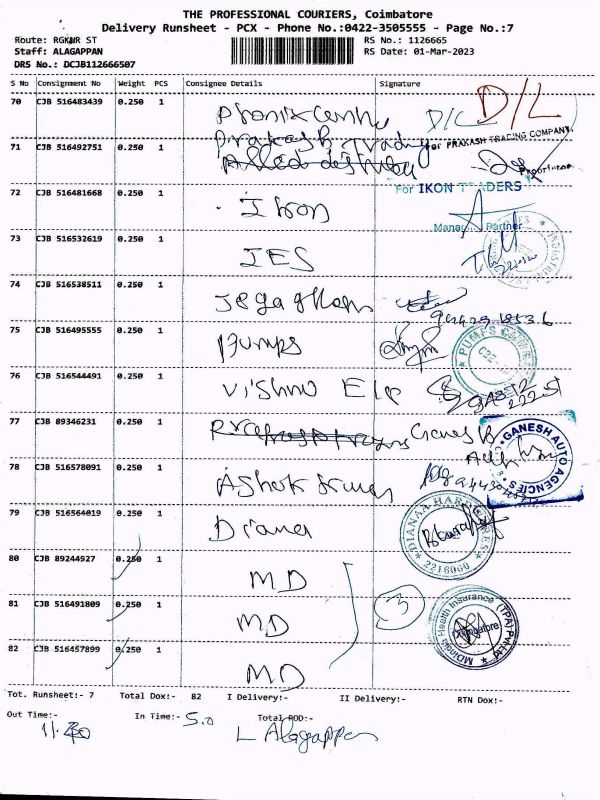 THE PROFESSIONAL COURIERS, Coimbatore
Delivery Runsheet - PCX - Phone No.:0422-3505555 - Page No.:7
Route: RGKMR ST RS No.: 1126665
Staff: ALAGAPPAN RS Date: 01-Mar-2023
DRS No.: DCJB112666507
S No Consignment No Weight PCS Consignee Details Signature
70 CJB 516483439 0.250 1 D/L D/L
71 CJB 516492751 0.250 1 Prakash Trading For PRAKASH TRADING COMPANY
Proprietor
72 CJB 516481668 0.250 1 Ikon For IKON TRADERS
Managing Partner
73 CJB 516532619 0.250 1 JES
74 CJB 516538511 0.250 1
75 CJB 516495555 0.250 1 Pumps
76 CJB 516544491 0.250 1 Vishnu Ele
77 CJB 89346231 0.250 1 Ganesh GANESH AUTO AGENCIES
78 CJB 516578091 0.250 1 Ashok
79 CJB 516564019 0.250 1 Diana
2216000
80 CJB 89244927 0.250 1 MD
81 CJB 516491809 0.250 1 MD 3 MDIndia Health Insurance (TPA) Pvt Ltd
Coimbatore
82 CJB 516457899 0.250 1 MD
Tot. Runsheet:- 7 Total Dox:- 82 I Delivery:- II Delivery:- RTN Dox:-
Out Time:- In Time:- 5.0 Total POD:-
L Alagappan